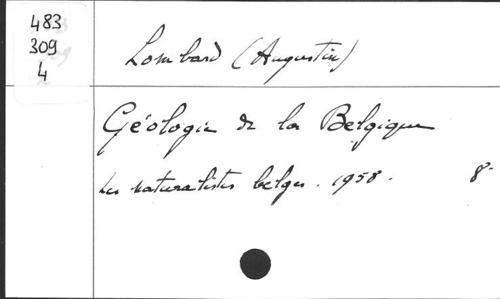 483
309
4
Lombard (Augustin)
Géologie de la Belgique
Les naturalistes belges. 1958. 8-